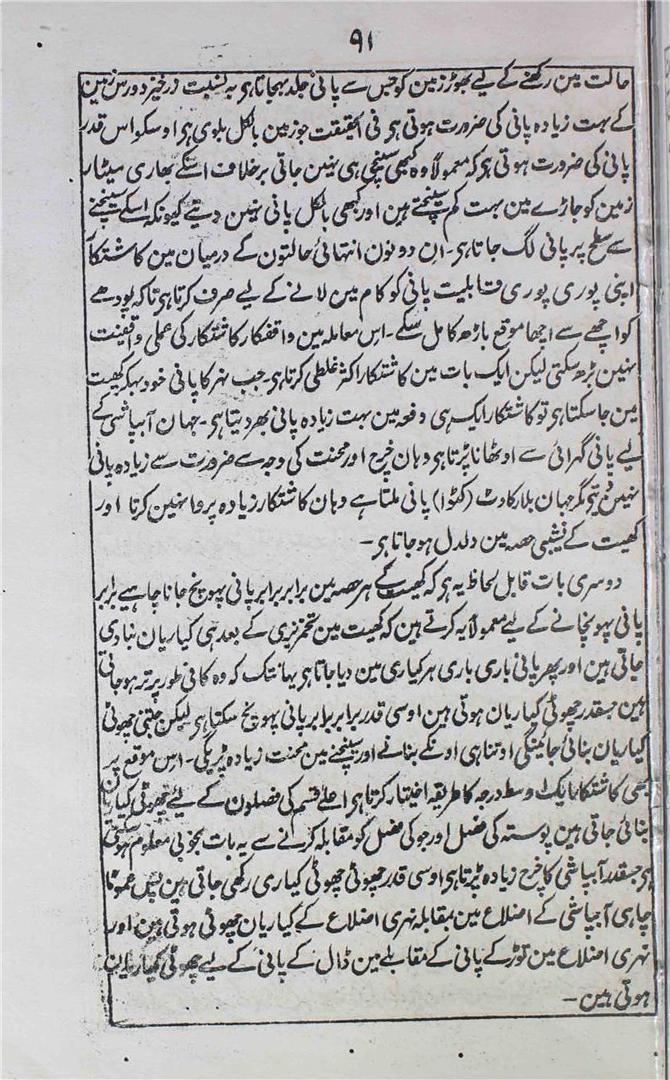 ۹۱
حالت مین رکھنے کے لیے بھوڑ زمین کو جس سے پانی جلد بہجاتا ہی بہ نسبت زرخیز دورس زمین
کے بہت زیادہ پانی کی ضرورت ہوتی ہی فی الحقیقت جو زمین بالکل بلوی ہی اوسکو اس قدر
پانی کی ضرورت ہوتی ہی کہ معمولاً وہ کبھی سینچی ہی نہین جاتی برخلاف اسکے بھاری مٹیار
زمین کو جاڑے مین بہت کم سینچتے ہین اور کبھی بالکل پانی نہین دیتے کیونکہ اسکے سینچنے
سے سطح پر پانی لگ جاتا ہی۔ ان دونون انتہائی حالتون کے درمیان مین کاشتکار
اپنی پوری پوری قابلیت پانی کو کام مین لانے کے لیے صرف کرتا ہی تاکہ پودھے
کو اچھے سے اچھا موقع باڑھ کا مل سکے۔ اس معاملہ مین واقفکار کاشتکار کی عملی واقفیت
نہین بڑھ سکتی لیکن ایک بات مین کاشتکار اکثر غلطی کرتا ہی۔ جب نہر کا پانی خود بہکر کھیت
مین جا سکتا ہی تو کاشتکار ایک ہی دفعہ مین بہت زیادہ پانی بھر دیتا ہی۔ جہان آبپاشی کے
لیے پانی گہرائی سے اوٹھانا پڑتا ہی وہان خرچ اور محنت کی وجہ سے ضرورت سے زیادہ پانی
نہین دیتے مگر جہان بلا رکاوٹ (کھڑا) پانی ملتا ہے وہان کاشتکار زیادہ پروا نہین کرتا اور
کھیت کے نشیبی حصہ مین دلدل ہو جاتا ہی۔
دوسری بات قابل لحاظ یہ ہی کہ کھیت کے ہر حصہ مین برابر برابر پانی پہونچ جانا چاہیے برابر
پانی پہونچانے کے لیے معمولاً یہ کرتے ہین کہ کھیت مین تخمریزی کے بعد ہی کیاریان بنا دی
جاتی ہین اور پھر پانی باری باری ہر کیاری مین دیا جاتا ہی یہانتک کہ وہ کافی طور پر تر ہو جاتی
ہین جسقدر چھوٹی کیاریان ہوتی ہین اوسی قدر برابر برابر پانی پہونچ سکتا ہی لیکن جتنی چھوٹی
کیاریان بنائی جائینگی اوتنا ہی اونکے بنانے اور سینچنے مین محنت زیادہ پڑیگی۔ اس موقع پر
بھی کاشتکار ایک اوسط درجہ کا طریقہ اختیار کرتا ہی اعلے قسم کی فصلون کے لیے چھوٹی کیاریان
بنائی جاتی ہین پوستہ کی فصل اور جو کی فصل کو مقابلہ کرنے سے یہ بات بخوبی معلوم ہو سکتی
ہی جسقدر آبپاشی کا خرچ زیادہ پڑتا ہی اوسی قدر چھوٹی چھوٹی کیاری رکھی جاتی ہین پس عموماً
چاہی آبپاشی کے اضلاع مین بمقابلہ نہری اضلاع کے کیاریان چھوٹی ہوتی ہین اور
نہری اضلاع مین توڑ کے پانی کے مقابلے مین ڈال کے پانی کے لیے چھوٹی کیاریان
ہوتی ہین۔